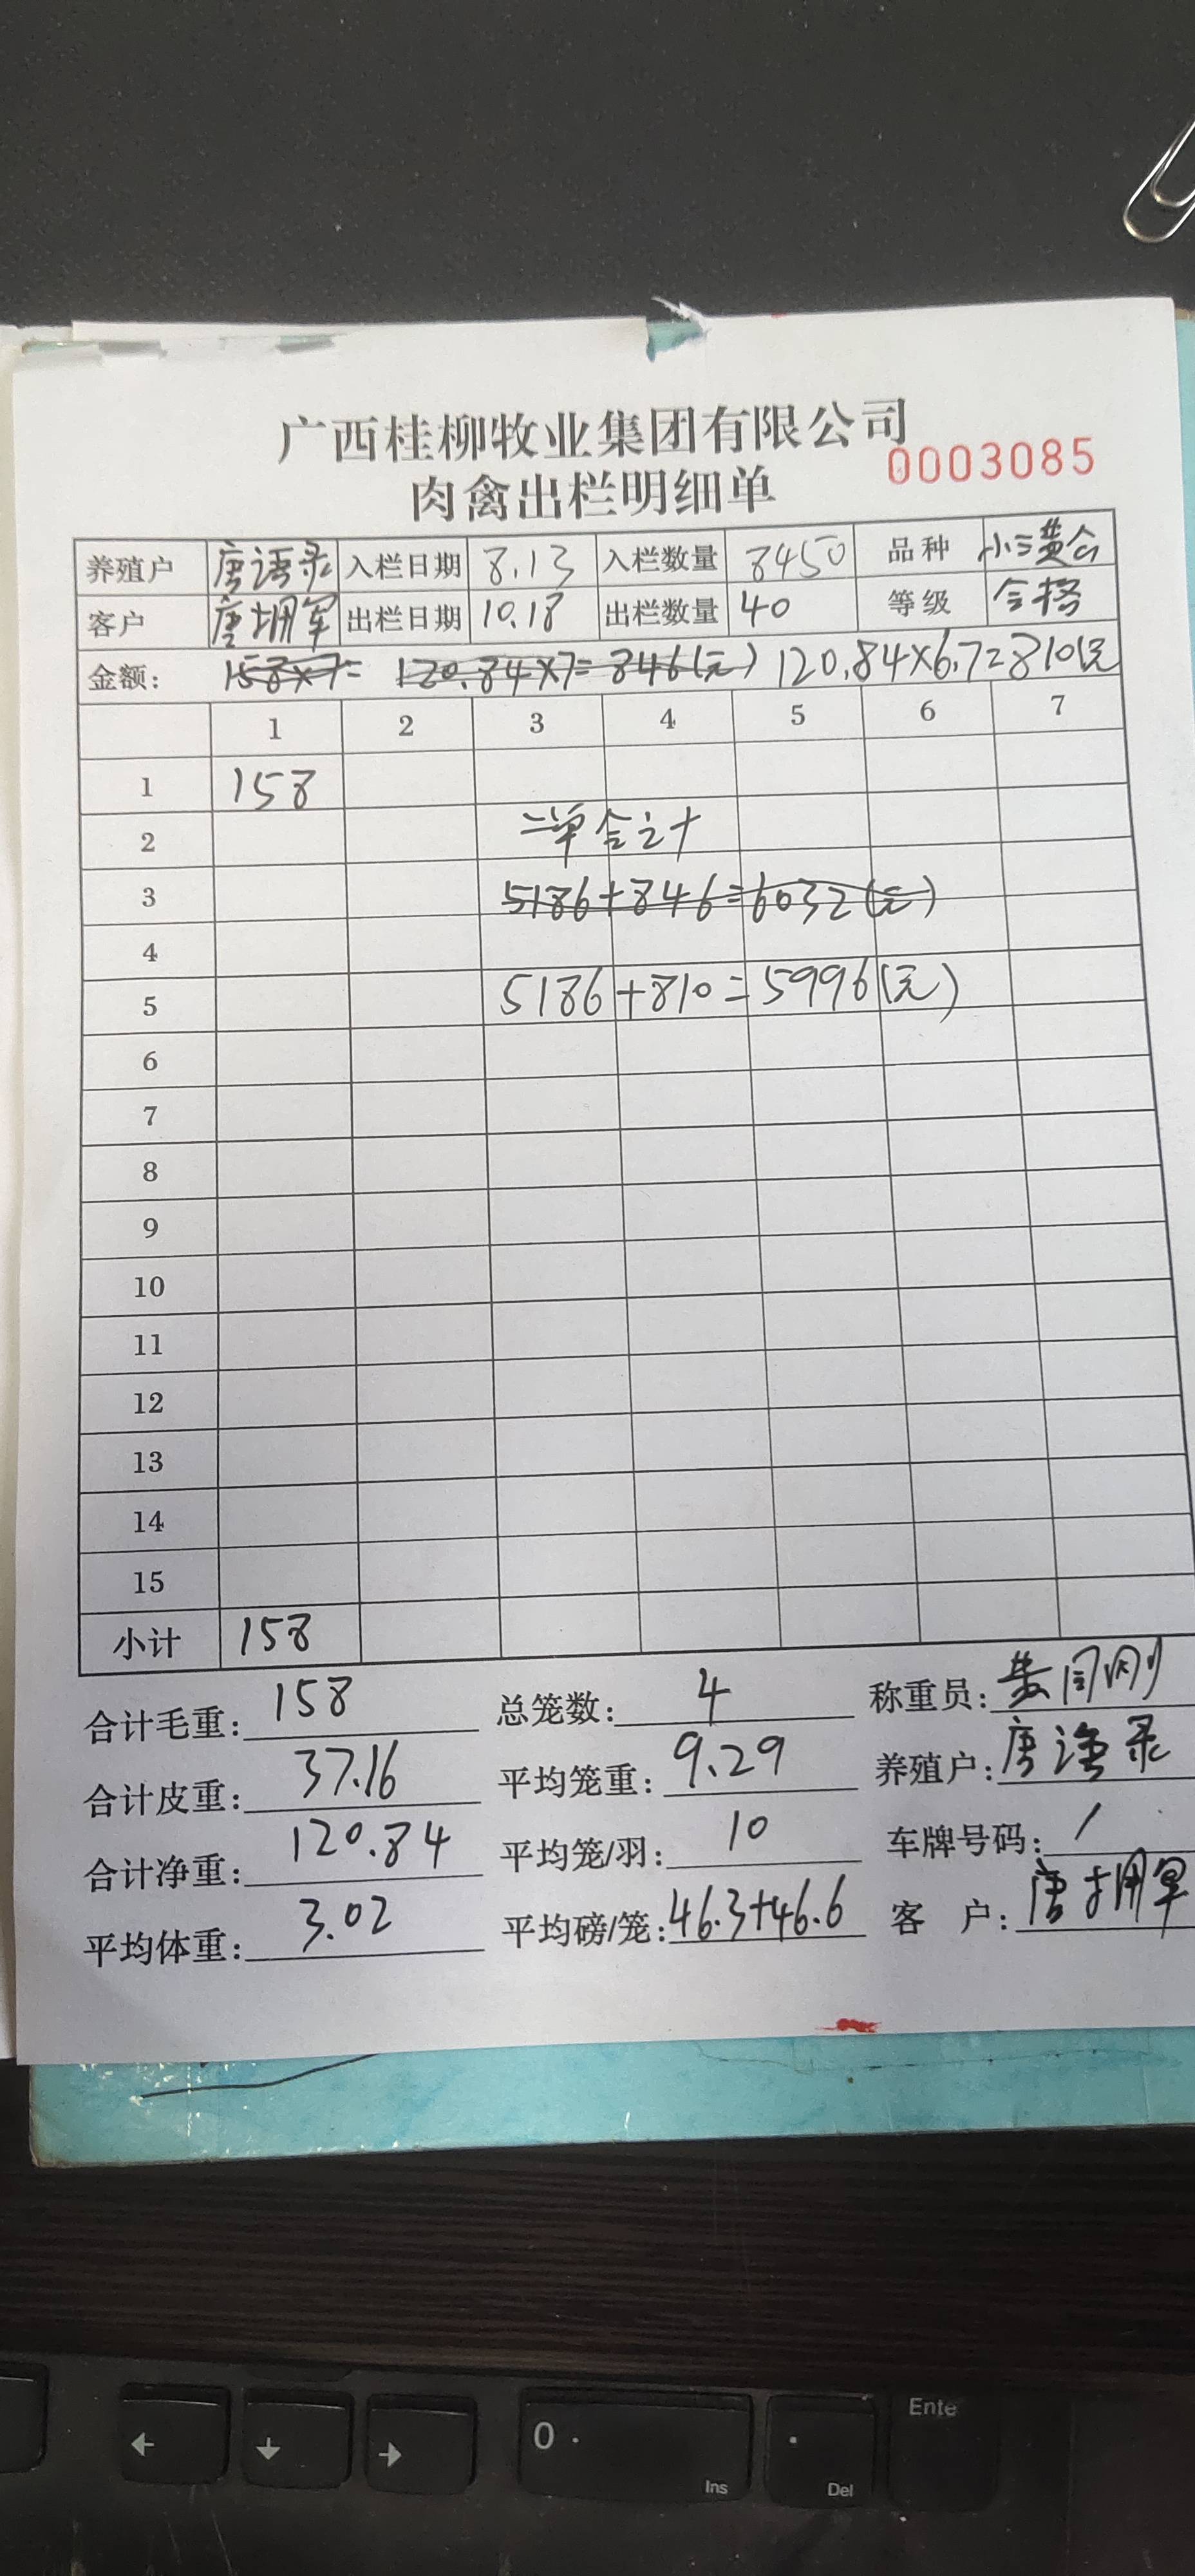 广西桂柳牧业集团有限公司
0003085
肉禽出栏明细单
养殖户 唐语录 入栏日期 8.13 入栏数量 8450 品种 小三黄
客户 唐拥军 出栏日期 10.18 出栏数量 40 等级 合格
金额: 158×7= 120.84×7=846(元) 120.84×6.7=810元
1 2 3 4 5 6 7
1 158
2 二单合计
3 5186+846=6032(元)
4
5 5186+810=5996(元)
6
7
8
9
10
11
12
13
14
15
小计 158
合计毛重: 158 总笼数: 4 称重员:
合计皮重: 37.16 平均笼重: 9.29 养殖户: 唐语录
合计净重: 120.84 平均笼/羽: 10 车牌号码: /
平均体重: 3.02 平均磅/笼: 46.3+46.6 客 户: 唐拥军
← ↓ → 0 · Ins . Del Ente